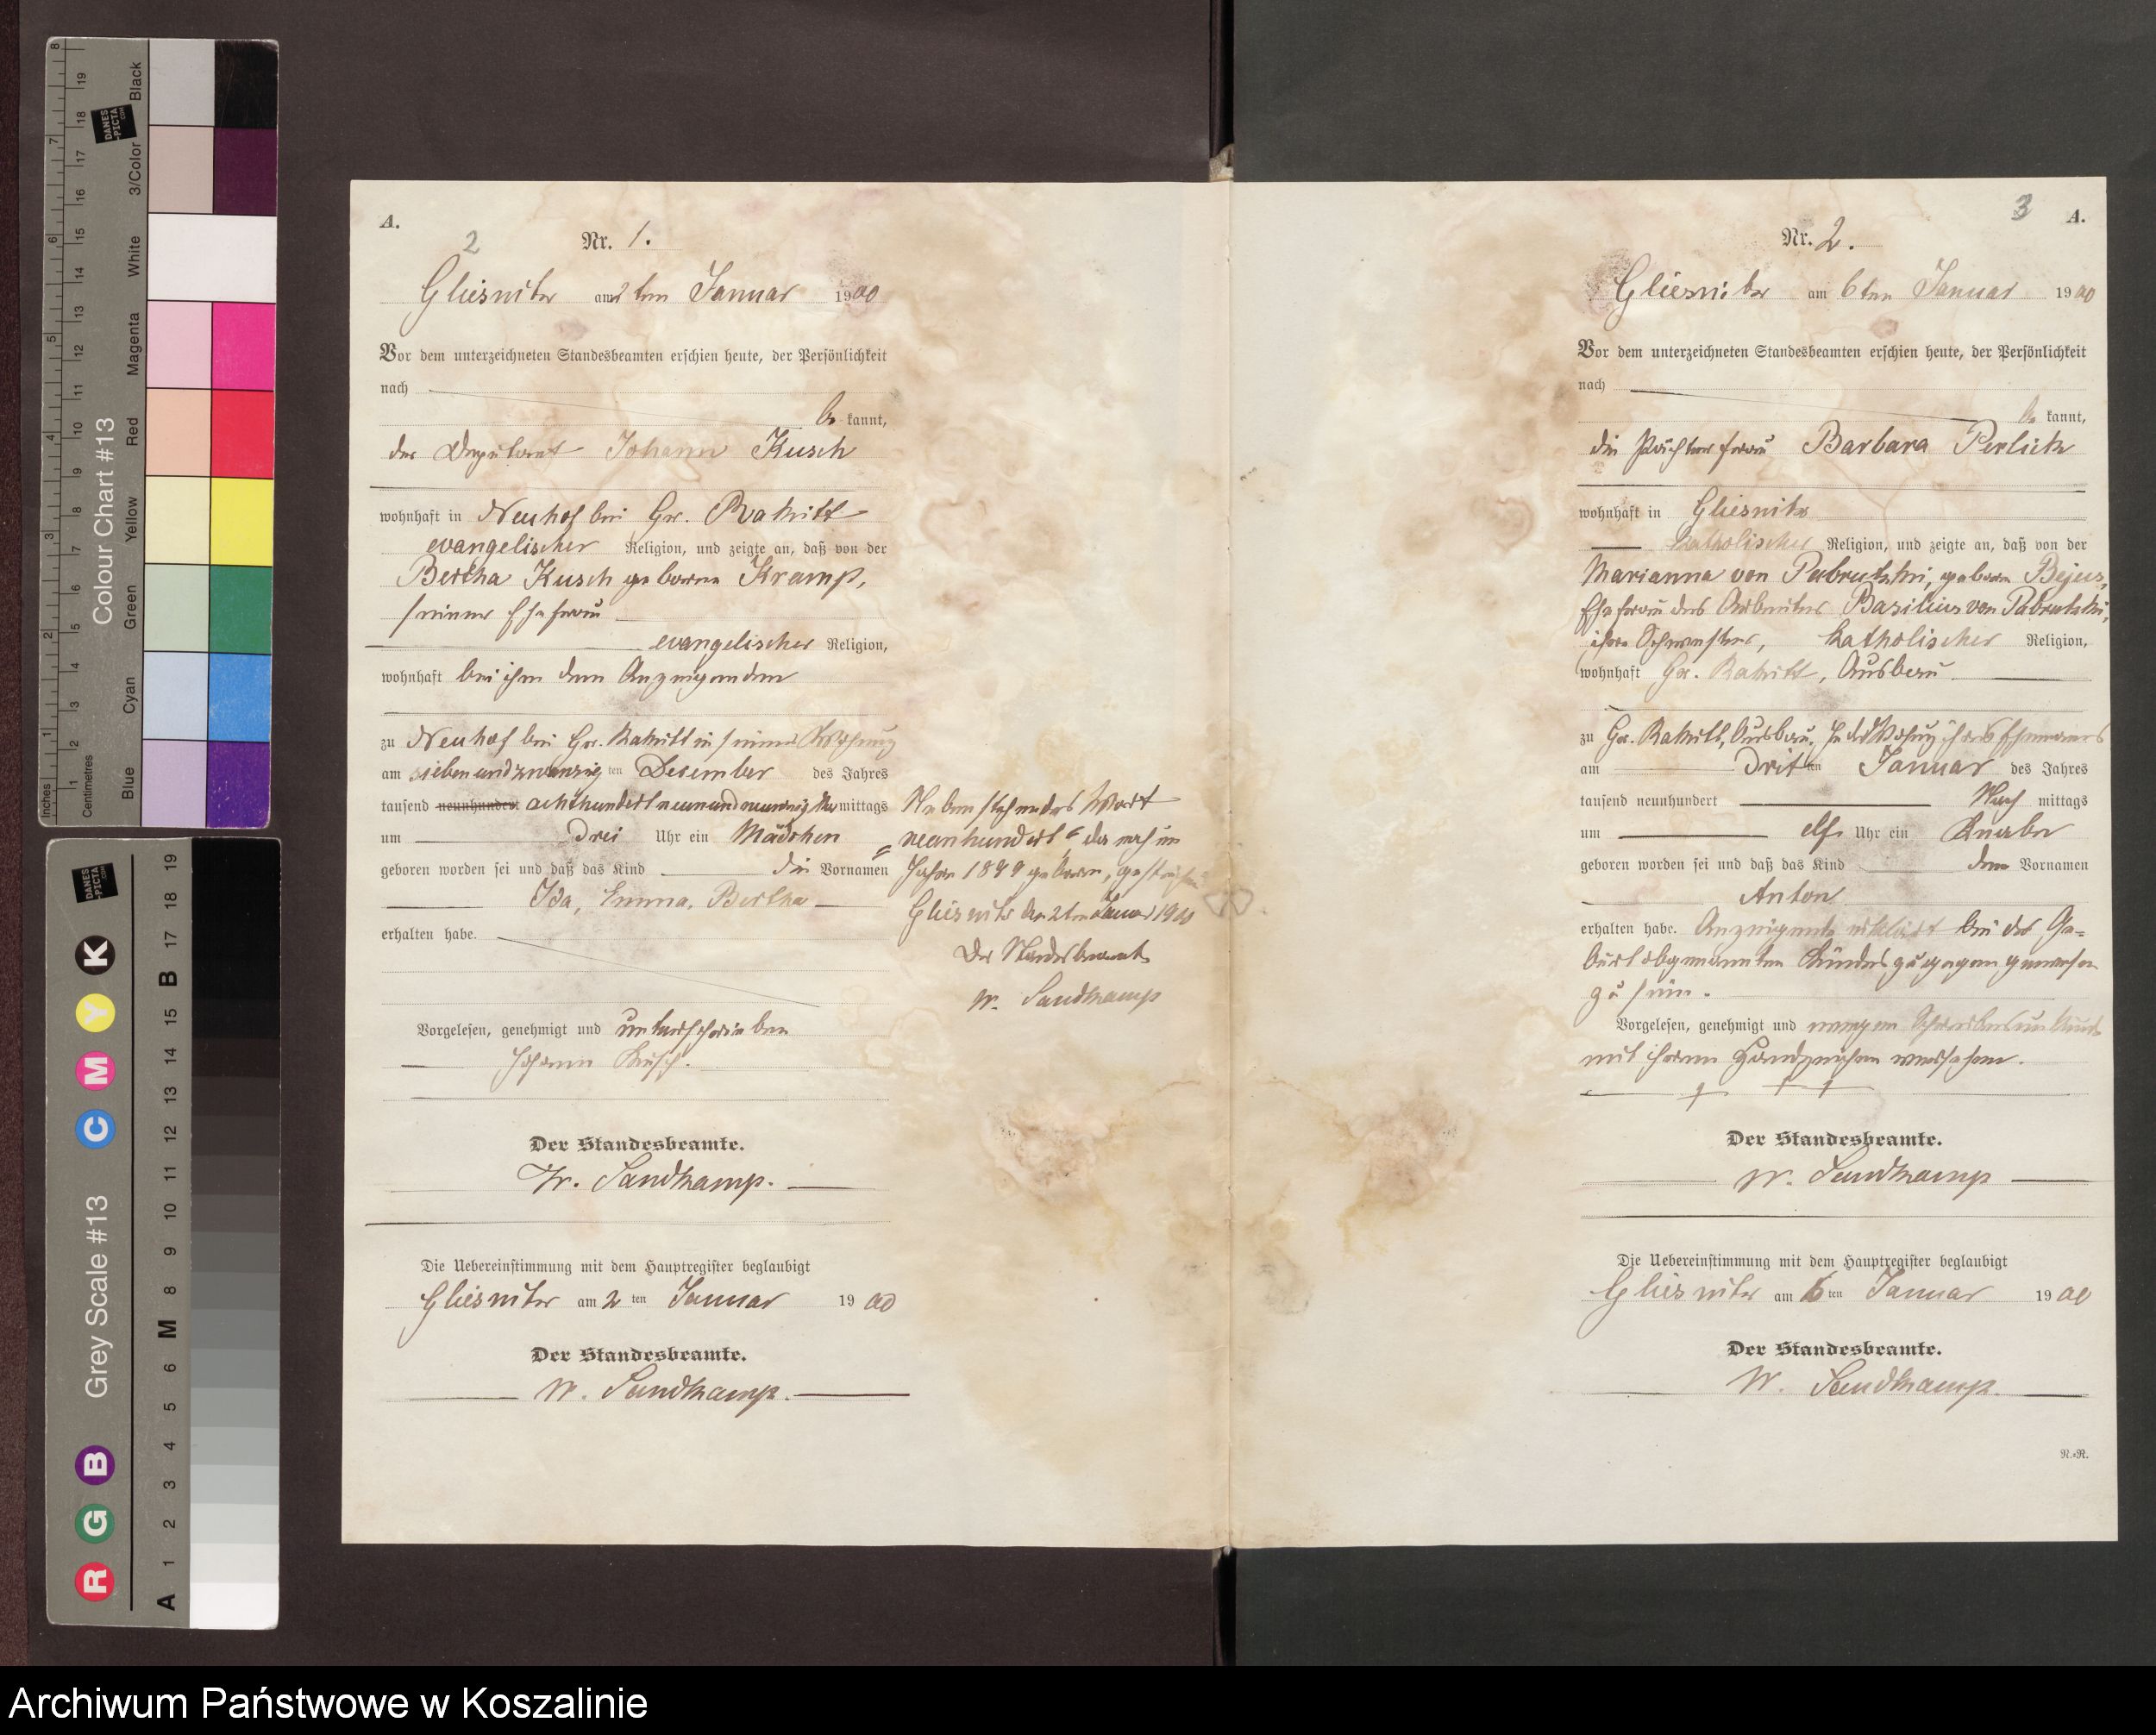 A.
2
Nr. 1.
Gliesnitz am 2ten Januar 1900
Vor dem unterzeichneten Standesbeamten erschien heute, der Persönlichkeit
nach
be kannt,
der Deputant Johann Kusch
wohnhaft in Neuhof bei Gr. Rakitt
evangelischer Religion, und zeigte an, daß von der
Bertha Kusch geborne Kramp,
seiner Ehefrau
evangelischer Religion,
wohnhaft bei ihm dem Anzeigenden
zu Neuhof bei Gr. Rakitt in seiner Wohnung
am siebenundzwanzig ten Desember des Jahres
tausend neunhundert achthundertneunundneunzig mittags
um drei Uhr ein Mädchen
geboren worden sei und daß das Kind die Vornamen
Ida, Emma, Bertha
erhalten habe.
Vorgelesen, genehmigt und unterschrieben
Johann Kusch.
Der Standesbeamte.
W. Sandkamp.
Die Uebereinstimmung mit dem Hauptregister beglaubigt
Gliesnitz am 2 ten Januar 1900
Der Standesbeamte.
W. Sandkamp.
Nebenstehendes Wort
„neunhundert“ da noch im
Jahre 1899 geboren, gestrichen
Gliesnitz den 2ten Januar 1900
Der Standesbeamte
W. Sandkamp
3
A.
Nr. 2.
Gliesnitz am 6ten Januar 1900
Vor dem unterzeichneten Standesbeamten erschien heute, der Persönlichkeit
nach
be kannt,
die Pächterfrau Barbara Perlick
wohnhaft in Gliesnitz
katholischer Religion, und zeigte an, daß von der
Marianna von Pabrutzki, geborne
Ehefrau des Arbeiters Basilius von Pabrutzki,
ihre Schwester, katholischer Religion,
wohnhaft Gr. Rakitt, Ausbau.
zu Gr. Rakitt, Ausbau, in der Wohnung ihres Ehemannes
am drit ten Januar des Jahres
tausend neunhundert Nach mittags
um elf Uhr ein Knabe
geboren worden sei und daß das Kind den Vornamen
Anton
erhalten habe. Anzeigende erklärt bei der Ge=
burt obgenannten Kindes zugegen gewesen
zu sein.
Vorgelesen, genehmigt und wegen Schreibensunkunde
mit ihrem Handzeichen versehen.
+ + +
Der Standesbeamte.
W. Sandkamp
Die Uebereinstimmung mit dem Hauptregister beglaubigt
Gliesnitz am 6 ten Januar 1900
Der Standesbeamte.
W. Sandkamp.
R.-R.
Colour Chart #13
Inches
Centimetres
Blue
Cyan
Green
Yellow
Red
Magenta
White
3/Color
Black
DANES
-PICTA
.COM
Grey Scale #13
R G B C M Y K
A 1 2 3 4 5 6 M 8 9 10 11 12 13 14 15 B 17 18 19
Archiwum Państwowe w Koszalinie